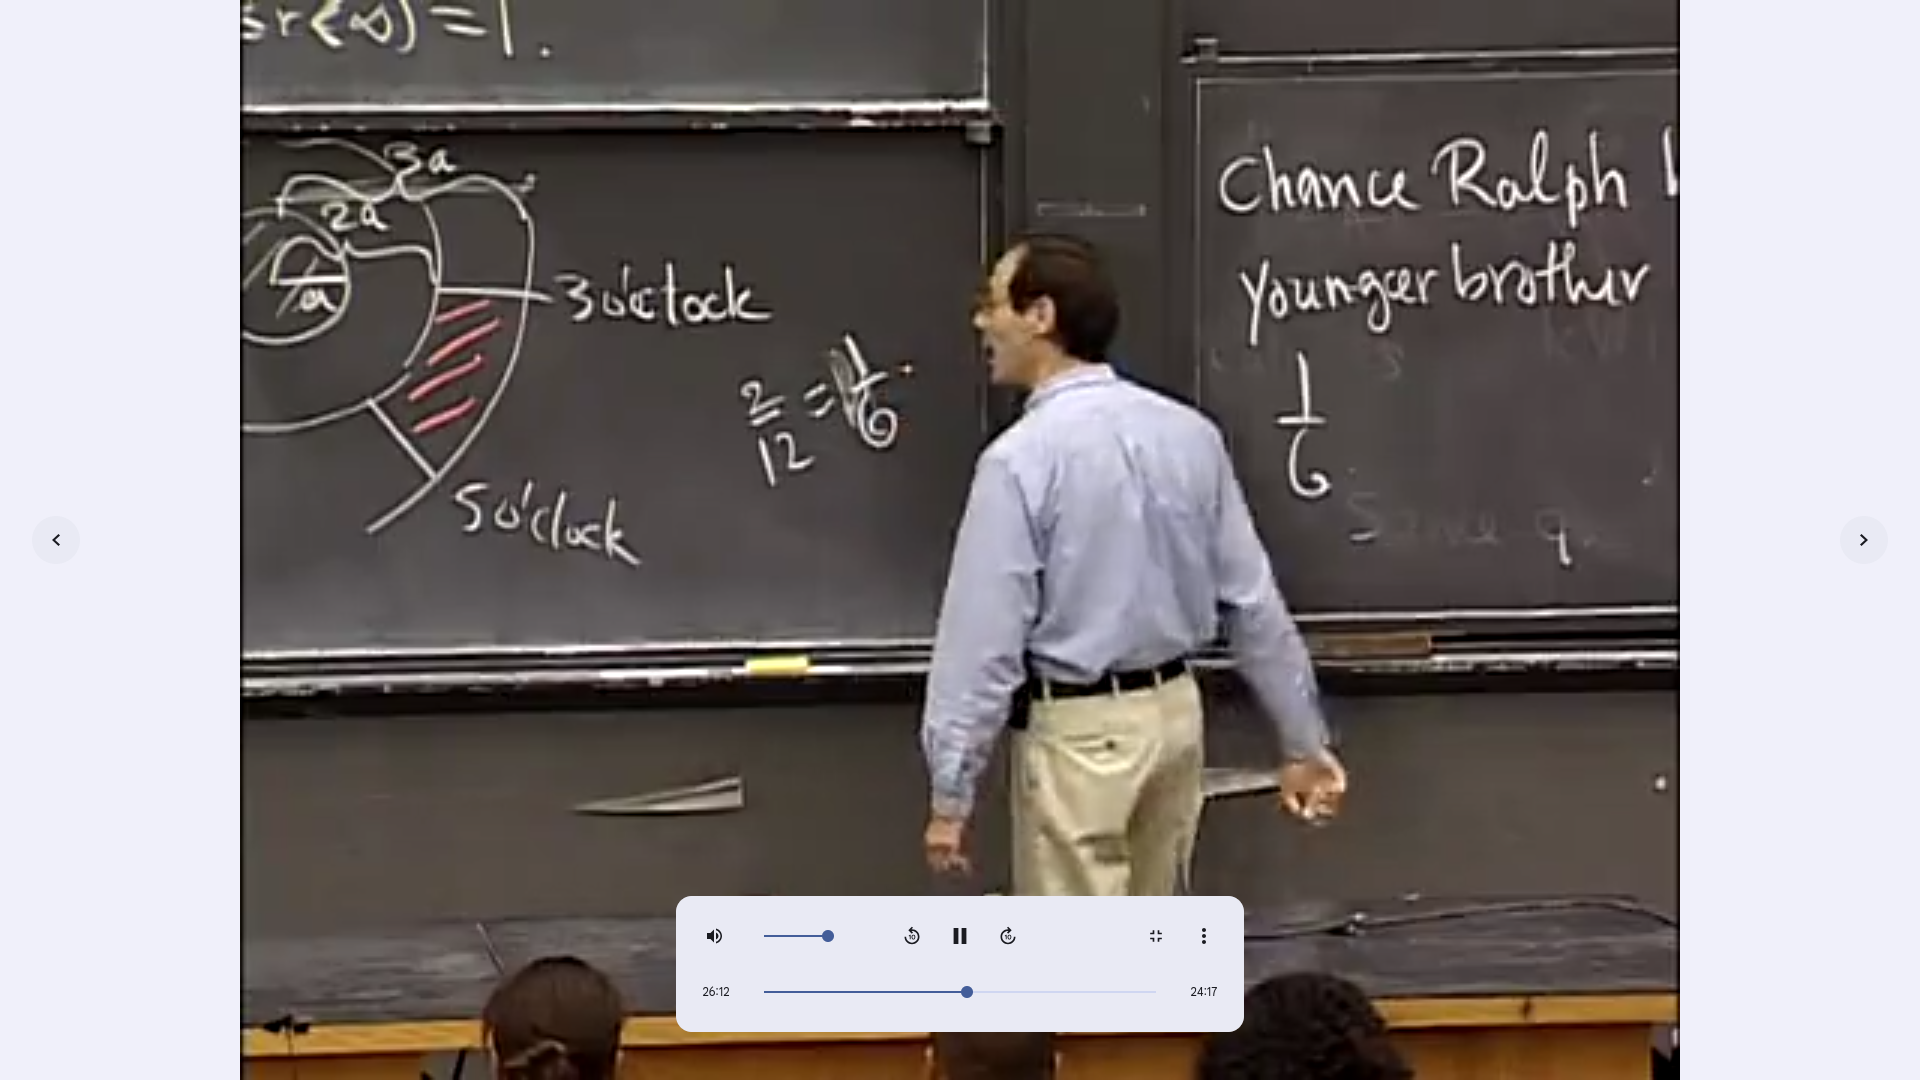 =1.
3a
2a
a
3 o'clock
2/12 = 1/6
5 o'clock
Chance Ralph
younger brother
1/6
26:12
24:17